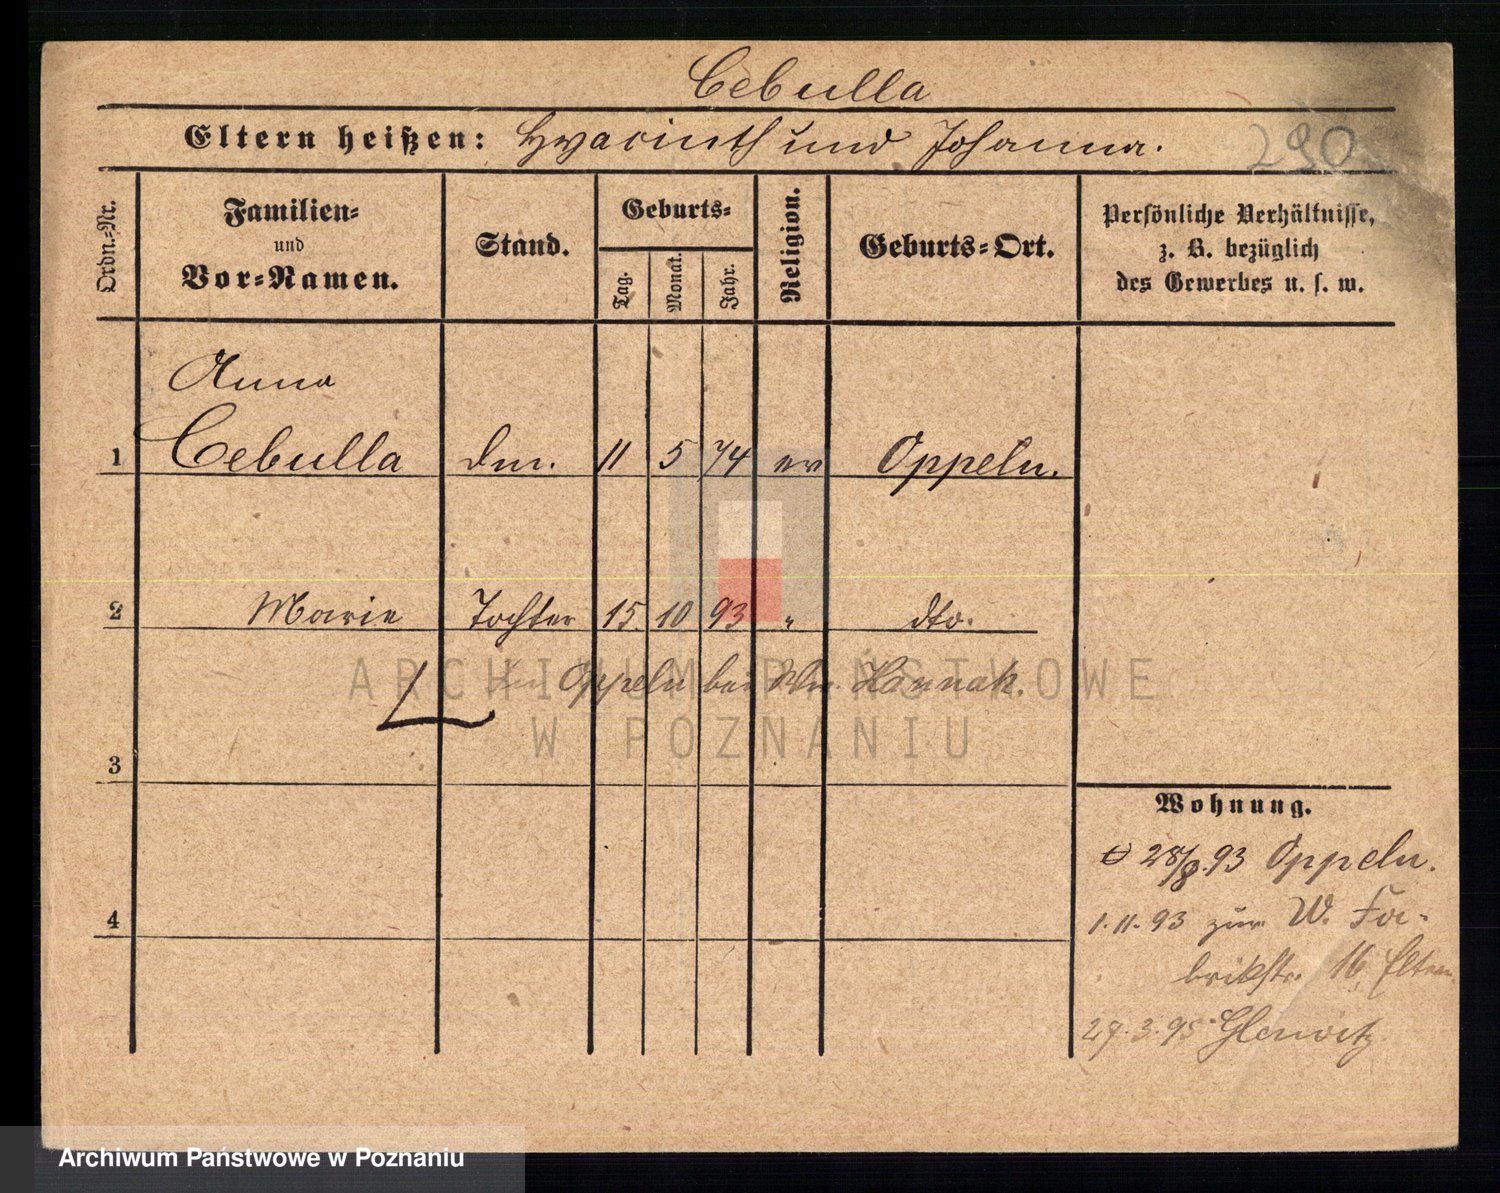 Cebulla
Eltern heißen: Hyacinth und Johanna.
290
Ordn.-Nr.
Familien-
und
Vor-Namen.
Stand.
Geburts-
Tag.
Monat.
Jahr.
Religion.
Geburts-Ort.
Persönliche Verhältnisse,
z. B. bezüglich
des Gewerbes u. s. w.
Anna
1 Cebulla 11 5 74 ev Oppeln.
2 Marie Tochter 15. 10 93 " dto.
Oppeln bei Hannak.
ARCHIWUM PAŃSTWOWE
W POZNANIU
3
Wohnung.
28/8.93 Oppeln.
4
1.11.93 zur W. Fa-
brikstr. 16 Eltern
27.3.95 Gleiwitz
Archiwum Państwowe w Poznaniu